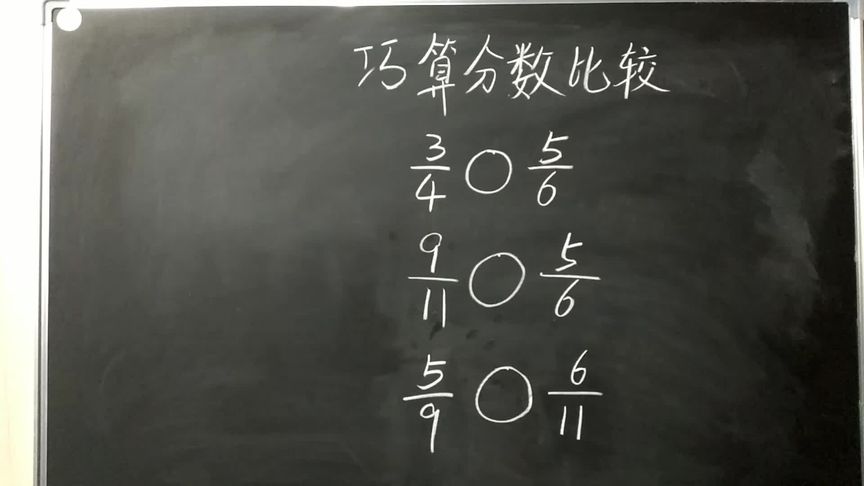 巧算分数比较
3/4 ○ 5/6
9/11 ○ 5/6
5/9 ○ 6/11